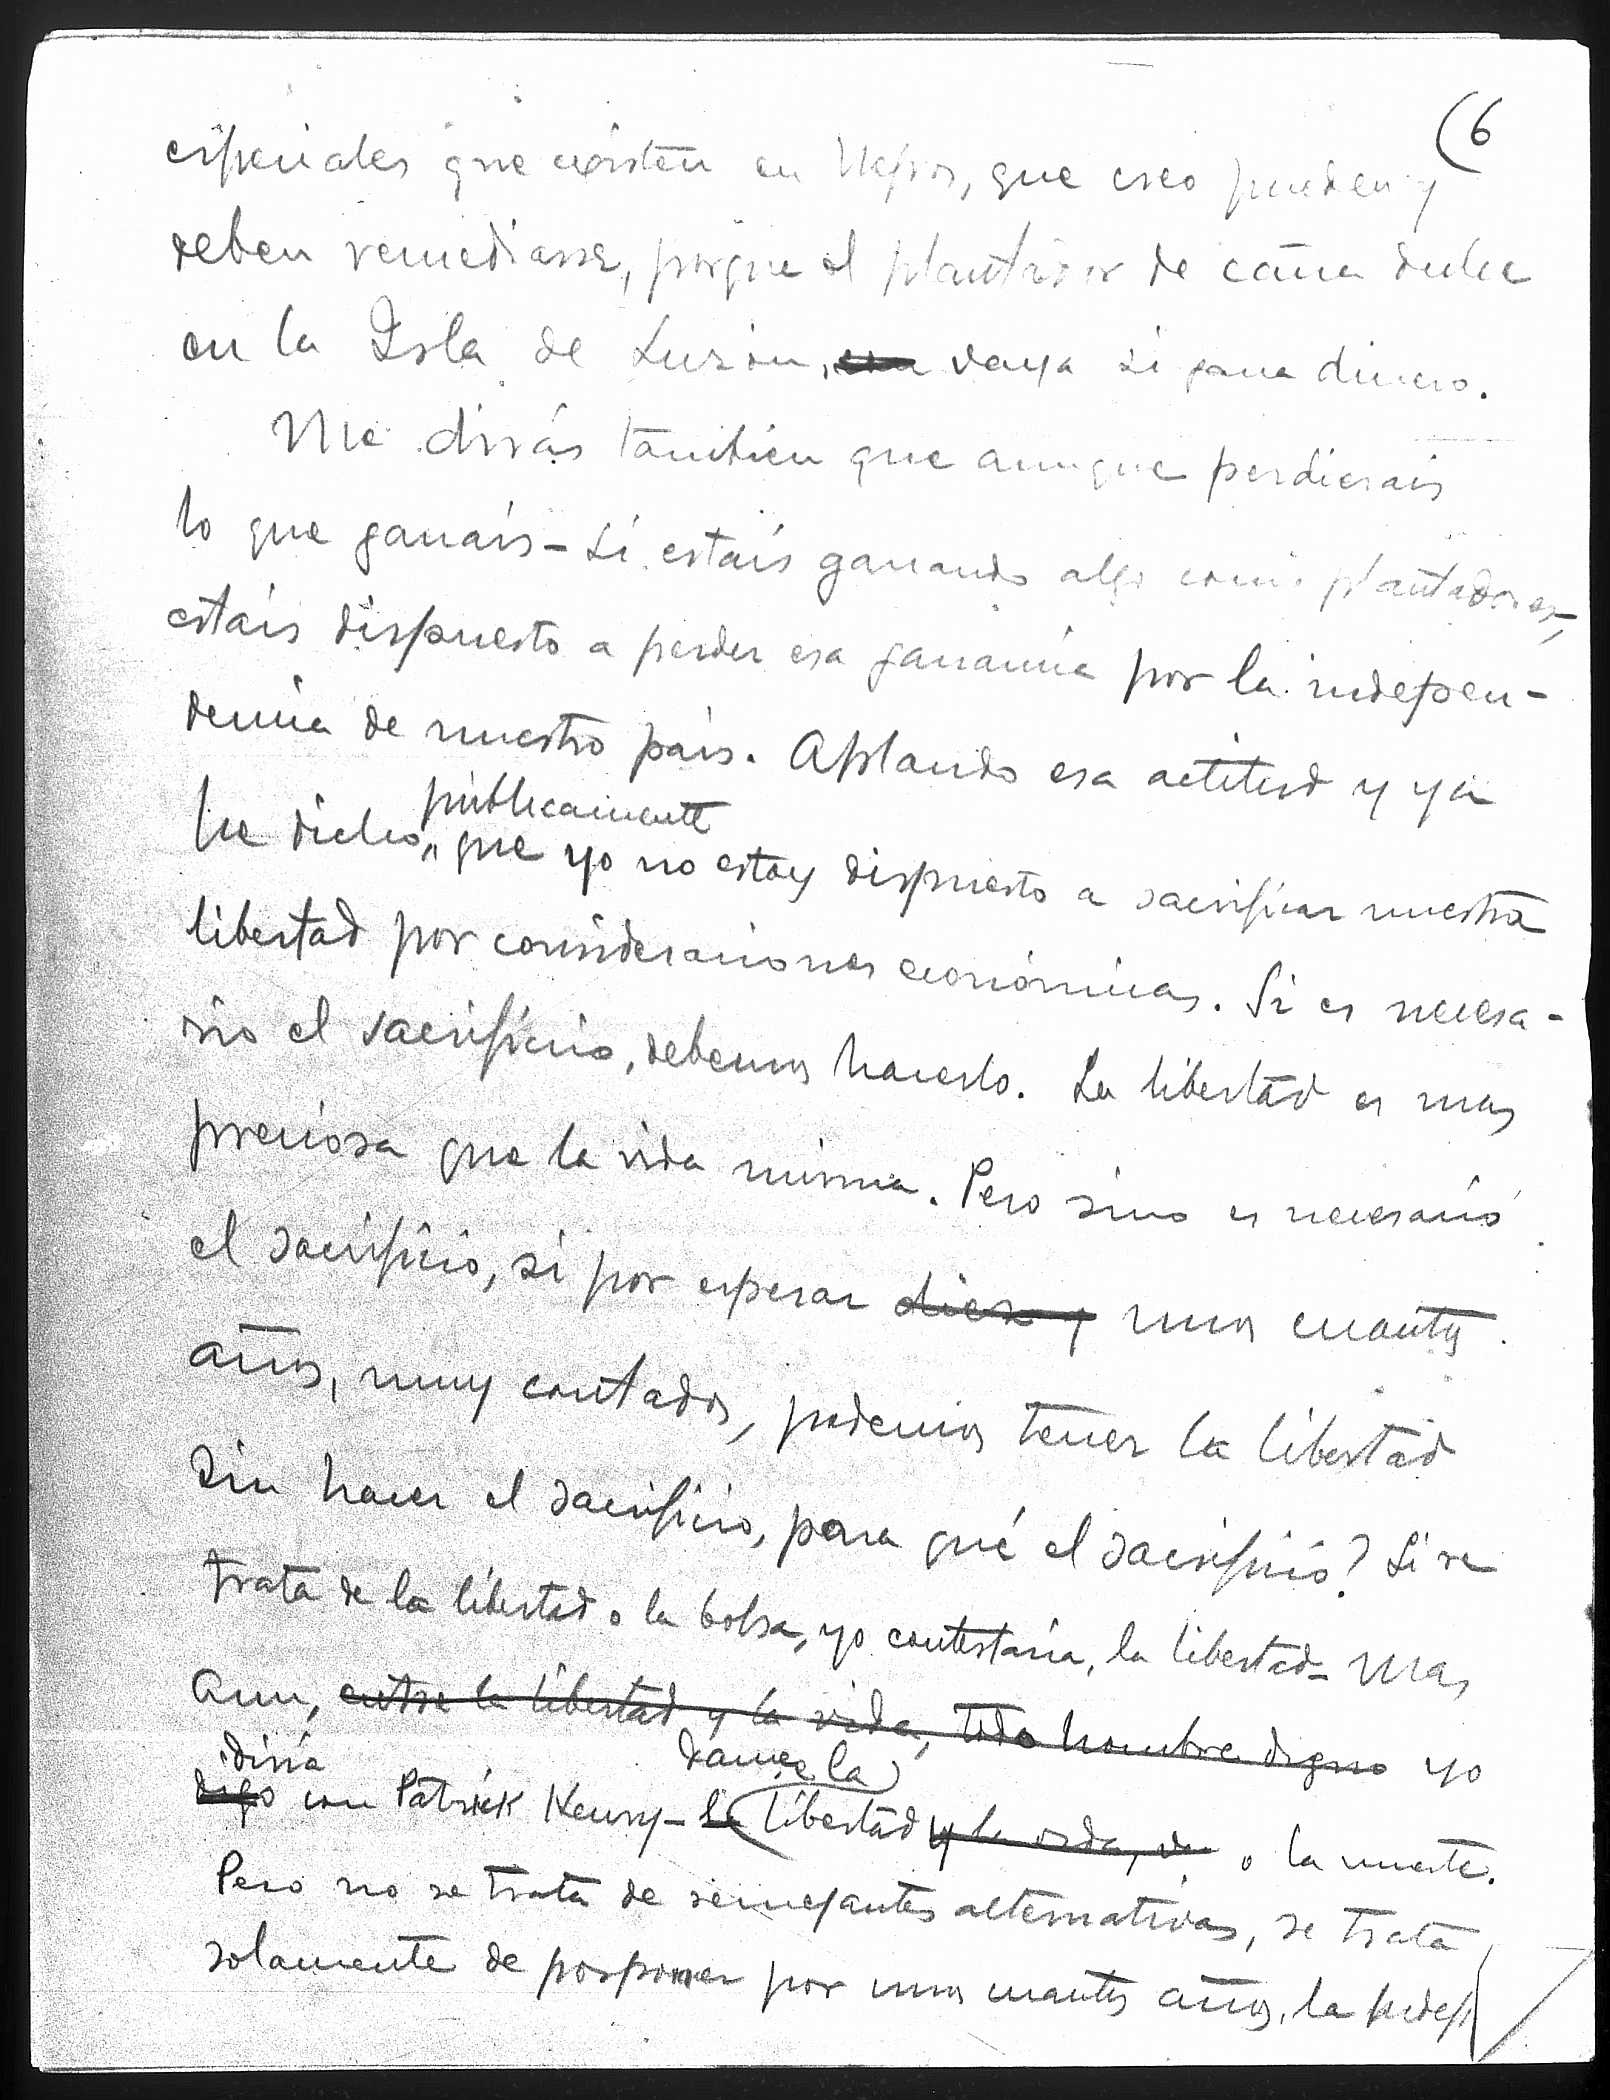 (6
especiales que existen en Negros, que creo pueden y
deben remediarse, porque el plantador de caña dulce
en la Isla de Luzon, vaya si gana dinero.
Me dirás tambien que aunque perdierais
lo que ganais - si estais ganando algo como plantadores,
estais dispuesto a perder esa ganancia por la indepen-
dencia de nuestro pais. Aplaudo esa actitud y ya
publicamente
he dicho, que yo no estoy dispuesto a sacrificar nuestra
libertad por consideraciones económicas. Si es necesa-
rio el sacrificio, debemos hacerlo. La libertad es mas
preciosa que la vida misma. Pero sino es necesario
el sacrificio, si por esperar diez y unos cuantos
años, muy contados, podemos tener la libertad
sin hacer el sacrificio, para qué el sacrificio? Si se
trata de la libertad o la bolsa, yo contestaria, la libertad - Mas
aun, entre la libertad y la vida, todo hombre digno yo
diria dámes la
digo con Patrick Henry - la libertad y la vida, o la muerte.
Pero no se trata de semejantes alternativas, se trata
solamente de posponer por unos cuantos años, la indep